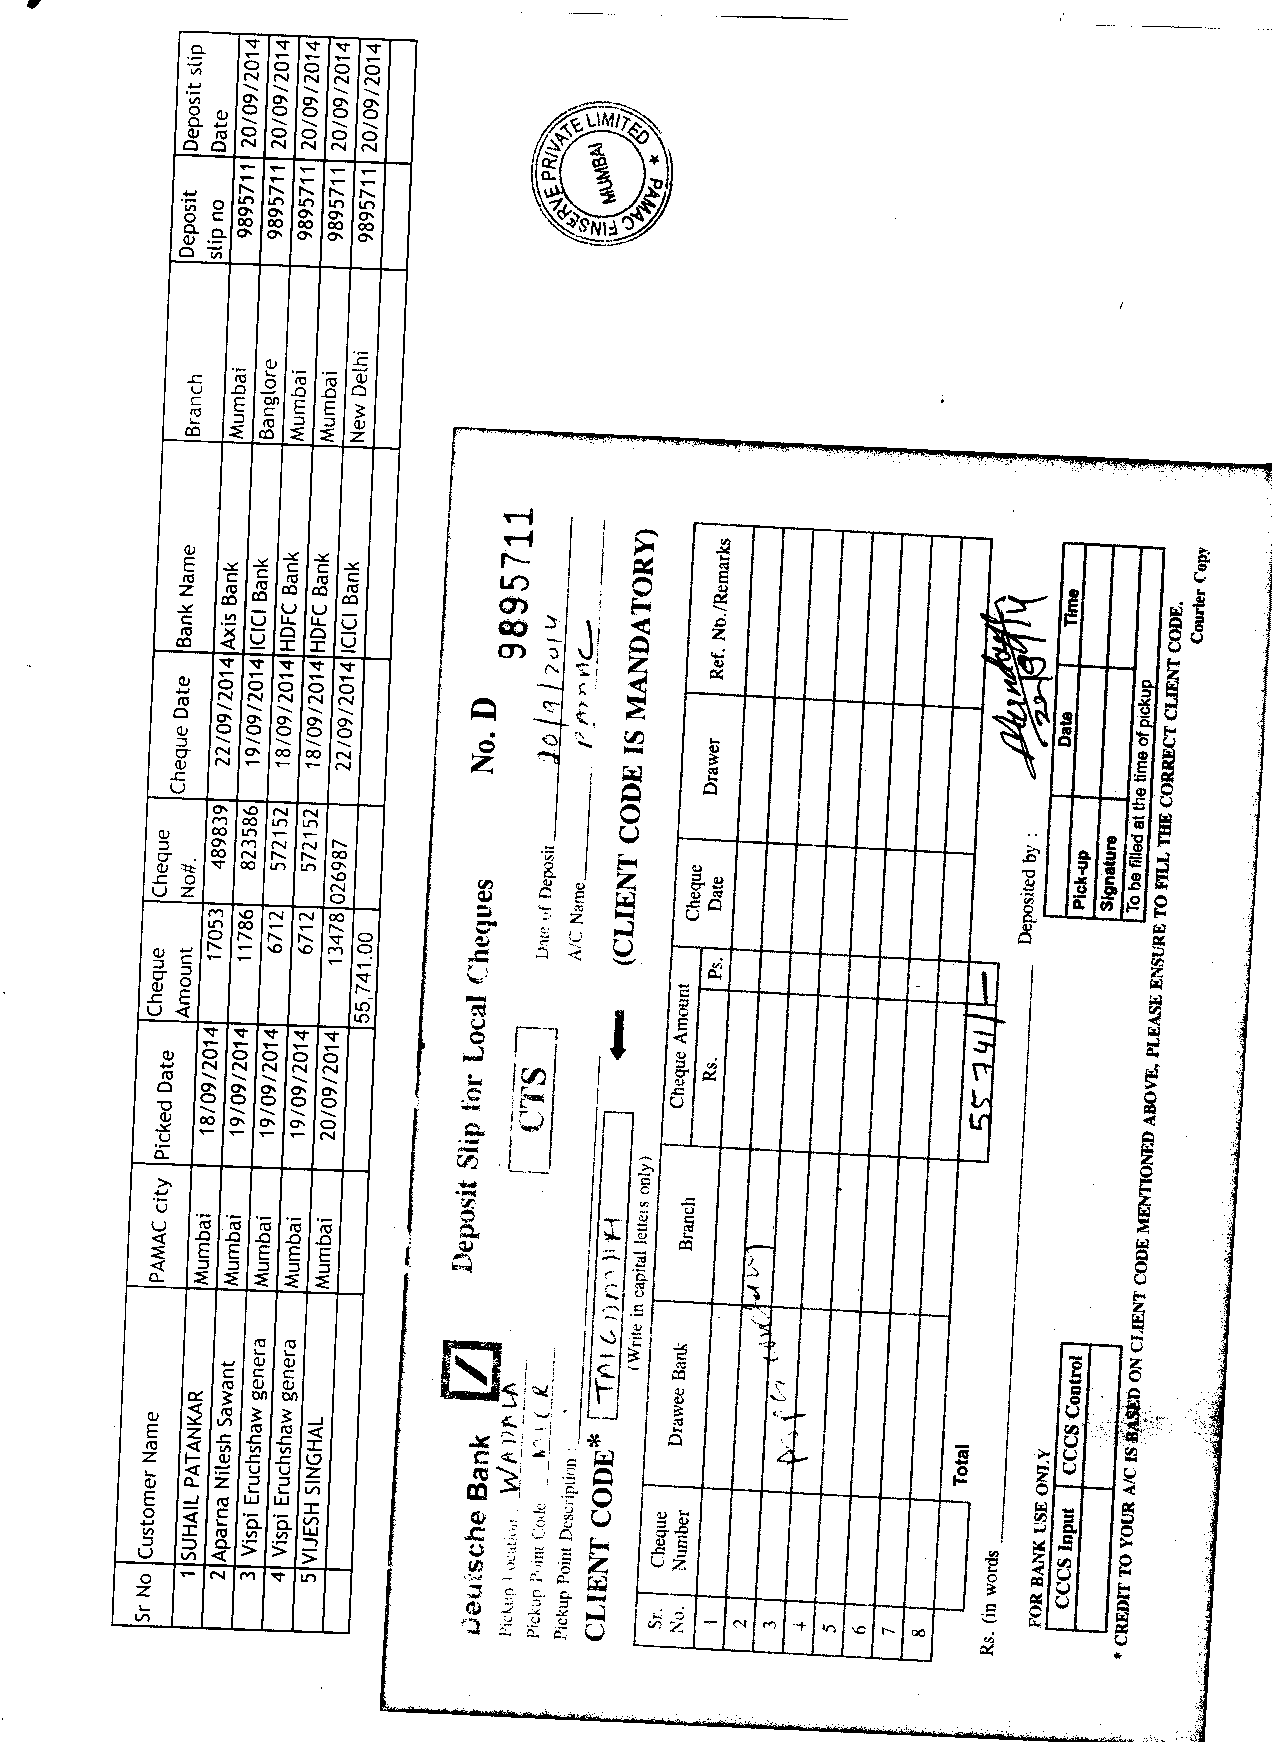 Sr No Customer Name PAMAC city Picked Date Cheque Amount Cheque No#. Cheque Date Bank Name Branch Deposit slip no Deposit slip Date
1 SUHAIL PATANKAR Mumbai 18/09/2014 17053 489839 22/09/2014 Axis Bank Mumbai 9895711 20/09/2014
2 Aparna Nilesh Sawant Mumbai 19/09/2014 11786 823586 19/09/2014 ICICI Bank Banglore 9895711 20/09/2014
3 Vispi Eruchshaw genera Mumbai 19/09/2014 6712 572152 18/09/2014 HDFC Bank Mumbai 9895711 20/09/2014
4 Vispi Eruchshaw genera Mumbai 19/09/2014 6712 572152 18/09/2014 HDFC Bank Mumbai 9895711 20/09/2014
5 VIJESH SINGHAL Mumbai 20/09/2014 13478 026987 22/09/2014 ICICI Bank New Delhi 9895711 20/09/2014
55,741.00
PAMAC FINSERVE PRIVATE LIMITED ★
MUMBAI
Deutsche Bank Deposit Slip for Local Cheques No. D 9895711
Pickup Location WADALA CTS Date of Deposit 20/9/2014
Pickup Point Code MICR A/C Name PAMAC
Pickup Point Description
CLIENT CODE* (CLIENT CODE IS MANDATORY)
(Write in capital letters only)
Sr. No. Cheque Number Drawee Bank Branch Cheque Amount Rs. Ps. Cheque Date Drawer Ref. No./Remarks
1
2
3
4
5
6
7
8
Total 55741/-
Rs. (in words Deposited by :
20/9/14
FOR BANK USE ONLY
CCCS Input CCCS Control
Date Time
Pick-up
Signature
To be filled at the time of pickup
* CREDIT TO YOUR A/C IS BASED ON CLIENT CODE MENTIONED ABOVE, PLEASE ENSURE TO FILL THE CORRECT CLIENT CODE.
Courier Copy